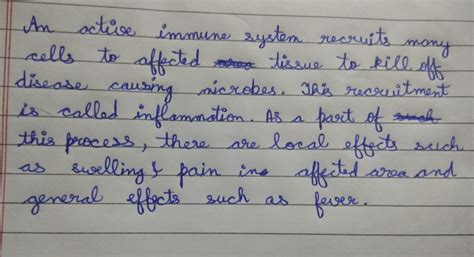 An active immune system recruits many
cells to affected tissue to kill off
disease causing microbes. This recruitment
is called inflammation. As a part of
this process, there are local effects such
as swelling & pain in affected area and
general effects such as fever.